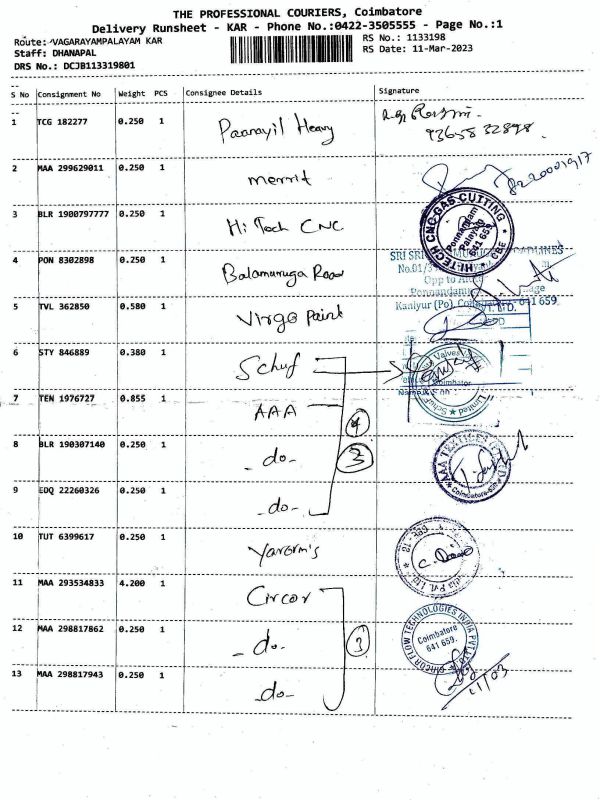 THE PROFESSIONAL COURIERS, Coimbatore
Delivery Runsheet - KAR - Phone No.:0422-3505555 - Page No.:1
Route: VAGARAYAMPALAYAM KAR
RS No.: 1133198
Staff: DHANAPAL
RS Date: 11-Mar-2023
DRS No.: DCJB113319801
S No Consignment No Weight PCS Consignee Details Signature
1 TCG 182277 0.250 1 Paanayil Heavy
9365832898
2 MAA 299629011 0.250 1 merrit 8220001917
3 BLR 1900797777 0.250 1 Hi Tech CNC
HITECH CNC GAS CUTTING
Ponnandam
Palayam
641 659
CBE
4 PON 8302898 0.250 1 Balamuruga Road
SRI SRI
No.01/3
Opp to
Kaniyur (Po), 641 659.
5 TVL 362850 0.580 1 Virgo Paint
LTD.
6 STY 846889 0.380 1 Schuf
Valves
Coimbatore
7 TEN 1976727 0.855 1 AAA
4
8 BLR 190307140 0.250 1 -do- 3
AAA
Coimbatore
9 EDQ 22260326 0.250 1 -do-
10 TUT 6399617 0.250 1
11 MAA 293534833 4.200 1 Circor
12 MAA 298817862 0.250 1 -do- 3
CIRCOR FLOW TECHNOLOGIES INDIA PVT.
Coimbatore
641 659.
13 MAA 298817943 0.250 1 -do-
11/03